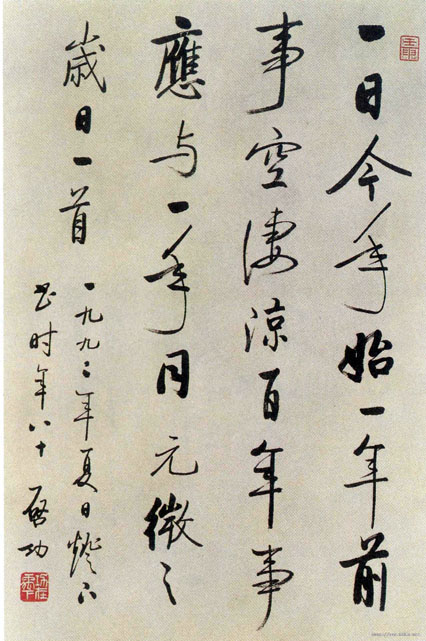 一日今年始一年前
事空淒涼百年事
應与一年同元微之
歲日一首
一九九二年夏日燈下
书时年八十啓功